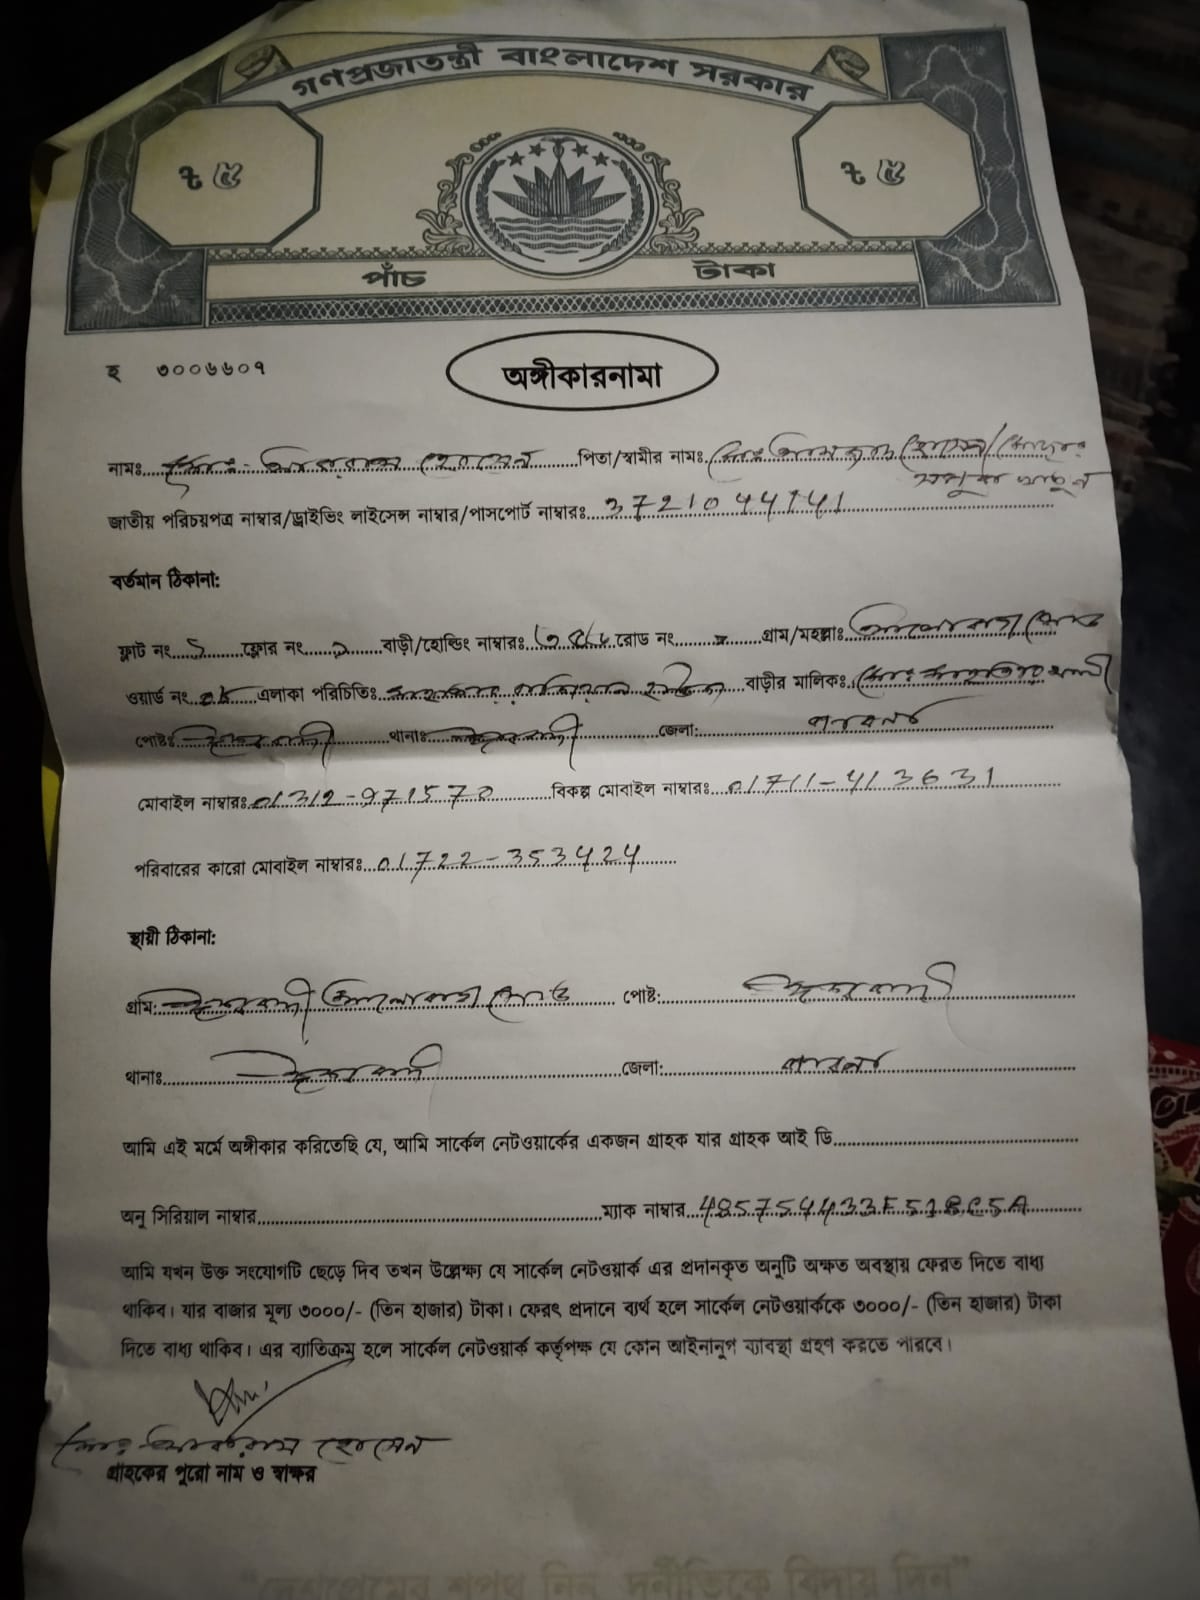 গণপ্রজাতন্ত্রী বাংলাদেশ সরকার
৳ ৫ ৳ ৫
পাঁচ টাকা
হ ৩০০৬৬০৭
অঙ্গীকারনামা
নামঃ মোঃ হোসেন পিতা/স্বামীর নামঃ মোঃ হোসেন/মোছাঃ
খাতুন
জাতীয় পরিচয়পত্র নাম্বার/ড্রাইভিং লাইসেন্স নাম্বার/পাসপোর্ট নাম্বারঃ 3721044141
বর্তমান ঠিকানা:
ফ্লাট নং ফ্লোর নং বাড়ী/হোল্ডিং নাম্বারঃ রোড নং গ্রাম/মহল্লাঃ
ওয়ার্ড নং এলাকা পরিচিতিঃ বাড়ীর মালিকঃ মোঃ আলী
পোষ্টঃ ঈশ্বরদী থানাঃ ঈশ্বরদী জেলা: পাবনা
মোবাইল নাম্বারঃ 01312-971570 বিকল্প মোবাইল নাম্বারঃ 01711-413631
পরিবারের কারো মোবাইল নাম্বারঃ 01722-353424
স্থায়ী ঠিকানা:
গ্রাম: ঈশ্বরদী রোড পোষ্ট: ঈশ্বরদী
থানাঃ ঈশ্বরদী জেলা: পাবনা
আমি এই মর্মে অঙ্গীকার করিতেছি যে, আমি সার্কেল নেটওয়ার্কের একজন গ্রাহক যার গ্রাহক আই ডি
অনু সিরিয়াল নাম্বার ম্যাক নাম্বার 485754433F51BC5A
আমি যখন উক্ত সংযোগটি ছেড়ে দিব তখন উল্লেক্ষ্য যে সার্কেল নেটওয়ার্ক এর প্রদানকৃত অনুটি অক্ষত অবস্থায় ফেরত দিতে বাধ্য
থাকিব। যার বাজার মূল্য ৩০০০/- (তিন হাজার) টাকা। ফেরৎ প্রদানে ব্যর্থ হলে সার্কেল নেটওয়ার্ককে ৩০০০/- (তিন হাজার) টাকা
দিতে বাধ্য থাকিব। এর ব্যাতিক্রম হলে সার্কেল নেটওয়ার্ক কর্তৃপক্ষ যে কোন আইনানুগ ব্যাবস্থা গ্রহণ করতে পারবে।
মোঃ হোসেন
গ্রাহকের পুরো নাম ও স্বাক্ষর
"দেশপ্রেমের শপথ নিন, দুর্নীতিকে বিদায় দিন"